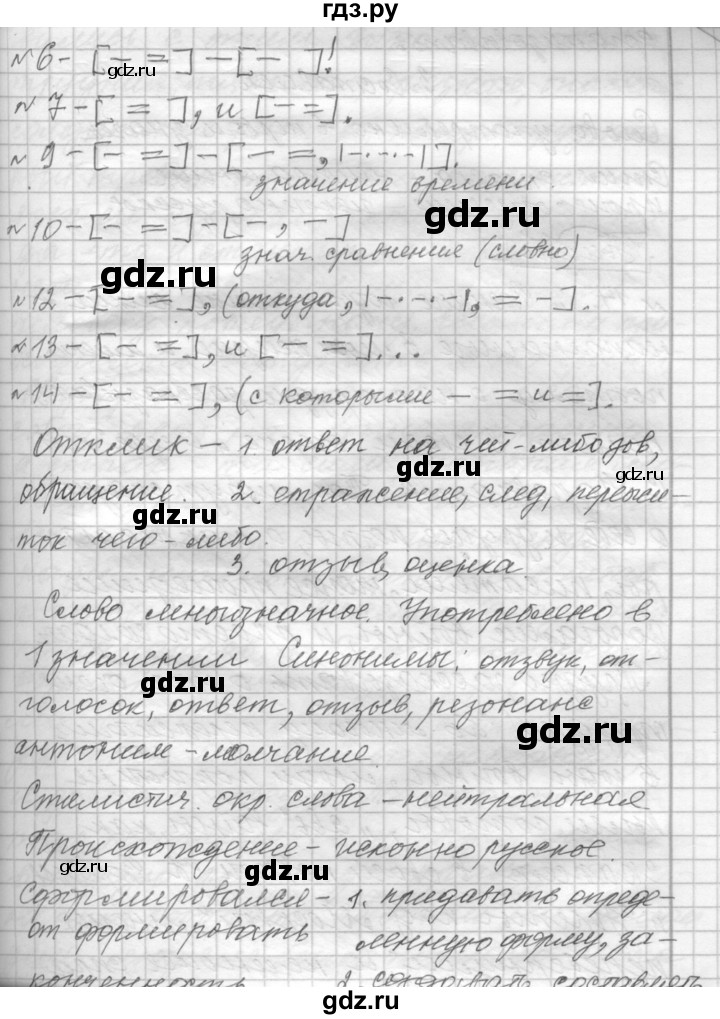 гдз.ру
№6 – [– =] – [– ]!
№7 – [ = ], и [– =].
№9 – [– =] – [– =, |–·–·–|].
значение времени.
№10 – [– =] – [–, –]
знач. сравнения (словно)
№12 – [– =], (откуда, |–·–·–|, = –].
№13 – [– =], и [– =]...
№14 – [– =], (с которыми – = и =].
Отклик – 1. ответ на чей-либо зов,
обращение. 2. отражение, след, пережи-
ток чего-либо.
3. отзыв, оценка.
Слово многозначное. Употреблено в
1 значении Синонимы: отзвук, от-
голосок, ответ, отзыв, резонанс
антоним – молчание.
Стилистич. окр. слова – нейтральная
Происхождение – исконно русское.
Сформировался – 1. придавать опреде-
от формировать ленную форму, за-
конченность 2. создавать, составлять
gdz.ru
gdz.ru
gdz.ru
gdz.ru
gdz.ru
gdz.ru
gdz.ru
gdz.ru
gdz.ru
gdz.ru
gdz.ru
gdz.ru
gdz.ru